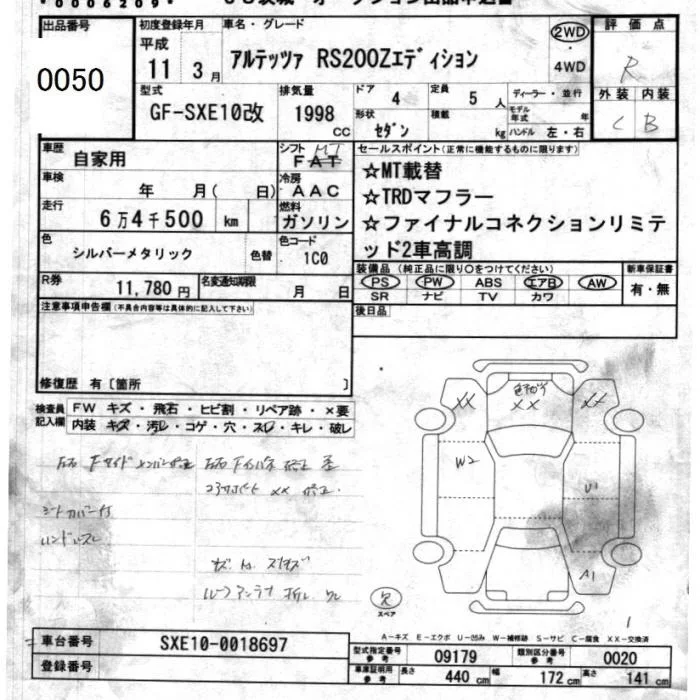 出品番号
0050
初度登録年月
平成
11 3月
車名・グレード
アルテッツァ RS200Zエディション
2WD
4WD
評価点
R
外装 内装
C B
型式
GF-SXE10改
排気量
1998
CC
ドア
4
定員
5人
ディーラー・並行
形状
セダン
積載
kg
モデル年式 年
ハンドル 左・右
車歴
自家用
シフト MT
FAT
車検
年 月(日)
冷房
AAC
走行
6万4千500 km
燃料
ガソリン
色
シルバーメタリック
色替
色コード
1C0
R券
11,780円
名変通知期限
月 日
セールスポイント(正常に機能するものに限ります)
☆MT載替
☆TRDマフラー
☆ファイナルコネクションリミテ
ッド2車高調
装備品(純正品に限り○をつけてください)
PS PW ABS エアB AW
SR ナビ TV カワ
新車保証書
有・無
後日品
注意事項申告欄(不具合内容等は具体的に記入して下さい)
修復歴 有〔箇所 〕
検査員記入欄
FW キズ・飛石・ヒビ割・リペア跡・×要
内装 キズ・汚レ・コゲ・穴・スレ・キレ・破レ
シートカバー付
ハンドルスレ
XX
XX
XX
W2
U1
A1
スペア
A-キズ E-エクボ U-凹み W-補修跡 S-サビ C-腐食 XX-交換済
車台番号
SXE10-0018697
登録番号
型式指定番号
参考
09179
類別区分番号
参考
0020
車庫証明用
参考
長さ
440 cm
幅
172 cm
高さ
141 cm